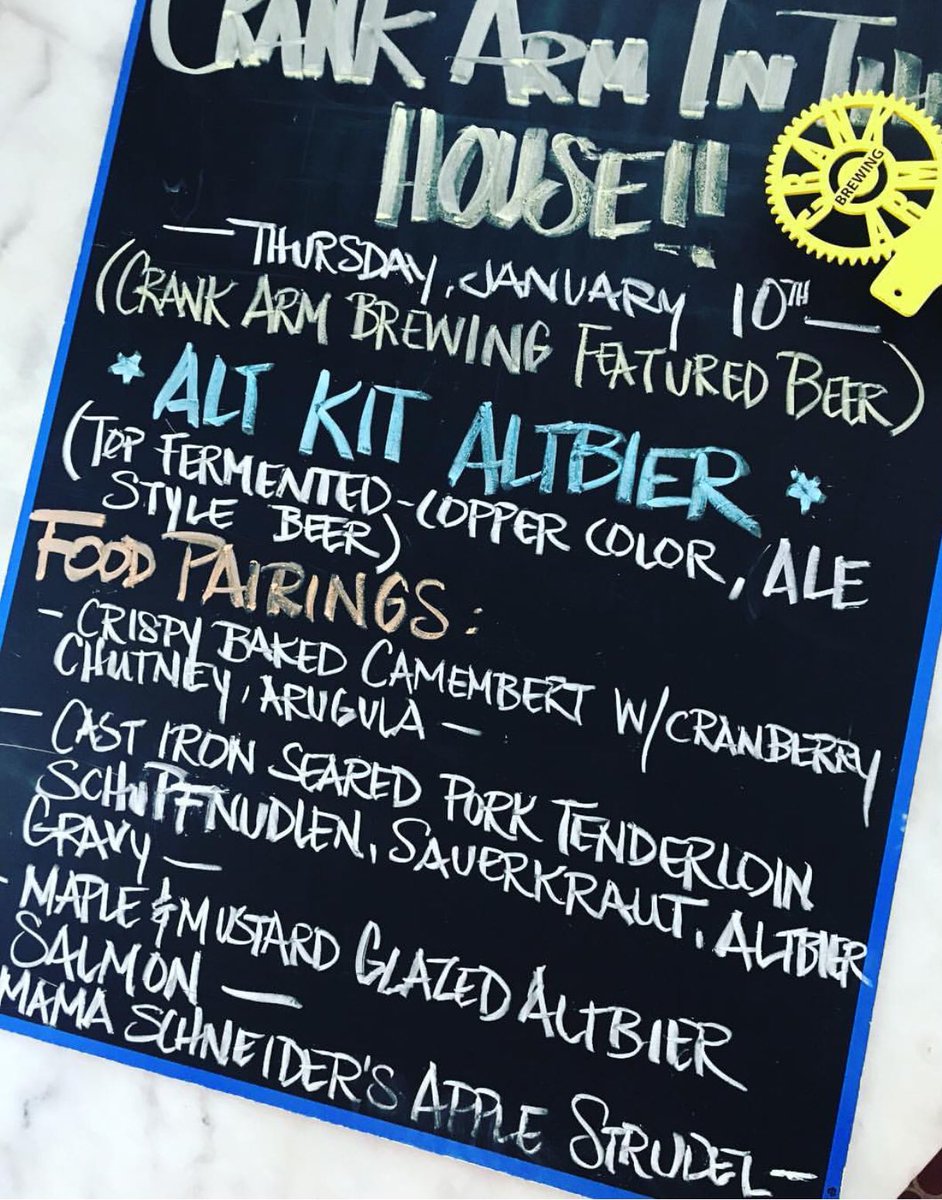 CRANK ARM IN THE
HOUSE!!
CRANK ARM
BREWING
— THURSDAY, JANUARY 10TH —
(CRANK ARM BREWING FEATURED BEER)
* ALT KIT ALTBIER *
(TOP FERMENTED - COPPER COLOR, ALE
STYLE BEER)
FOOD PAIRINGS:
- CRISPY BAKED CAMEMBERT W/CRANBERRY
CHUTNEY, ARUGULA -
- CAST IRON SEARED PORK TENDERLOIN
SCHUPFNUDLEN, SAUERKRAUT, ALTBIER
GRAVY -
- MAPLE & MUSTARD GLAZED ALTBIER
SALMON -
MAMA SCHNEIDER'S APPLE STRUDEL -